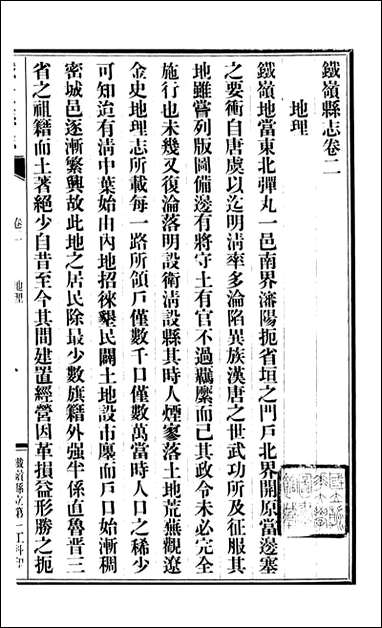 鐵嶺縣志卷二
地理
鐵嶺地當東北彈丸一邑南界瀋陽扼省垣之門戶北界開原當邊塞
之要衝自唐虞以迄明清率多淪陷異族漢唐之世武功所及征服其
地雖嘗列版圖備邊有將守土有官不過羈縻而已其政令未必完全
施行也未幾又復淪落明設衛清設縣其時人煙寥落土地荒蕪觀遼
金史地理志所載每一路所領戶僅數千口僅數萬當時人口之稀少
可知迨有清中葉始由內地招徠墾民闢土地設市廛而戶口始漸稠
密城邑遂漸繁興故此地之居民除最少數旗籍外强半係直魯晋三
省之祖籍而土著絕少自昔至今其間建置經營因革損益形勝之扼
卷二 地理
鐵嶺縣立第一工科印